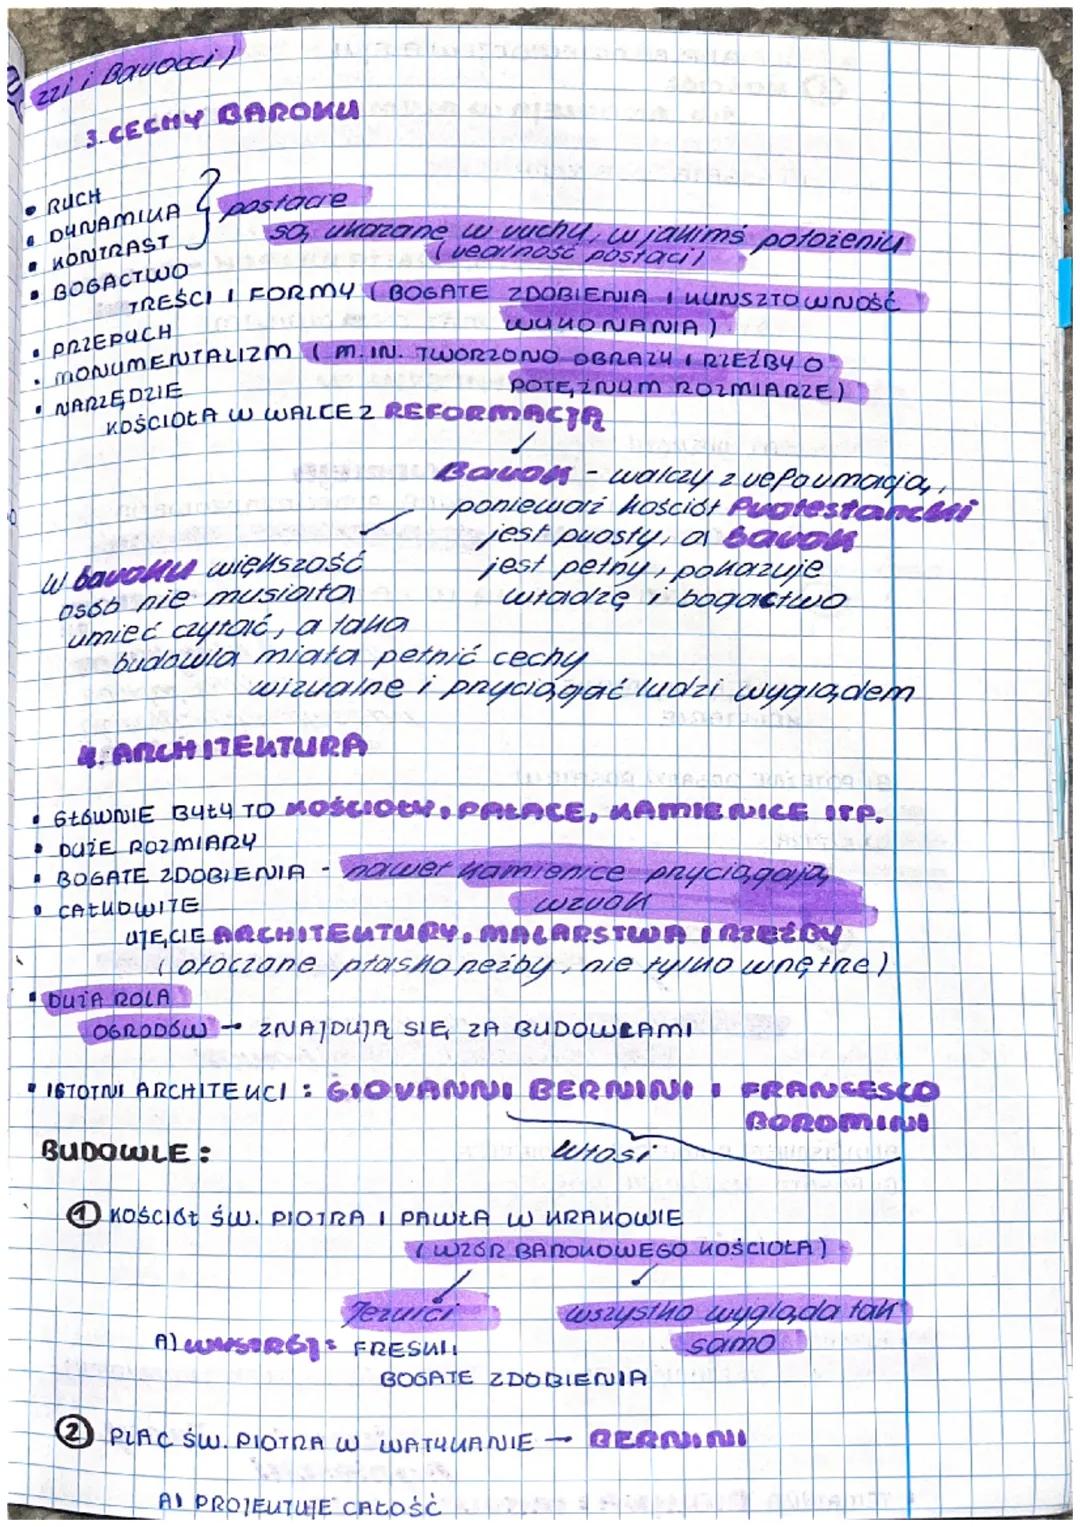 zzi i Barocci)
3. CECHY BAROKU
• RUCH
• DYNAMIKA } postacie
• KONTRAST są ukazane w ruchu, w jakimś położeniu
(realność postaci)
• BOGACTWO
TREŚCI I FORMY (BOGATE ZDOBIENIA I KUNSZTOWNOŚĆ
WYKONANIA)
• PRZEPYCH
• MONUMENTALIZM (M.IN. TWORZONO OBRAZY I RZEŹBY O
POTĘŻNYM ROZMIARZE)
• NARZĘDZIE
KOŚCIOŁA W WALCE Z REFORMACJĄ
Barok - walczy z reformacją,
ponieważ kościół Protestancki
jest prosty, a barok
jest pełny, pokazuje
władzę i bogactwo
W baroku większość
osób nie musiała
umieć czytać, a taka
budowla miała pełnić cechy
wizualne i przyciągać ludzi wyglądem
4. ARCHITEKTURA
• GŁÓWNIE BYŁY TO KOŚCIOŁY, PAŁACE, KAMIENICE ITP.
• DUŻE ROZMIARY
• BOGATE ZDOBIENIA - nawet kamienice przyciągają
wzrok
• CAŁKOWITE
UJĘCIE ARCHITEKTURY, MALARSTWA I RZEŹBY
(otoczone płaskorzeźby, nie tylko wnętrze)
• DUŻA ROLA
OGRODÓW → ZNAJDUJĄ SIĘ ZA BUDOWLAMI
• ISTOTNI ARCHITEKCI: GIOVANNI BERNINI I FRANCESCO
BOROMINI
Włosi
BUDOWLE:
① KOŚCIÓŁ ŚW. PIOTRA I PAWŁA W KRAKOWIE
(WZÓR BAROKOWEGO KOŚCIOŁA)
Jezuici wszystko wygląda tak
samo
A) WYSTRÓJ: FRESKI,
BOGATE ZDOBIENIA
② PLAC ŚW. PIOTRA W WATYKANIE → BERNINI
A) PROJEKTUJE CAŁOŚĆ